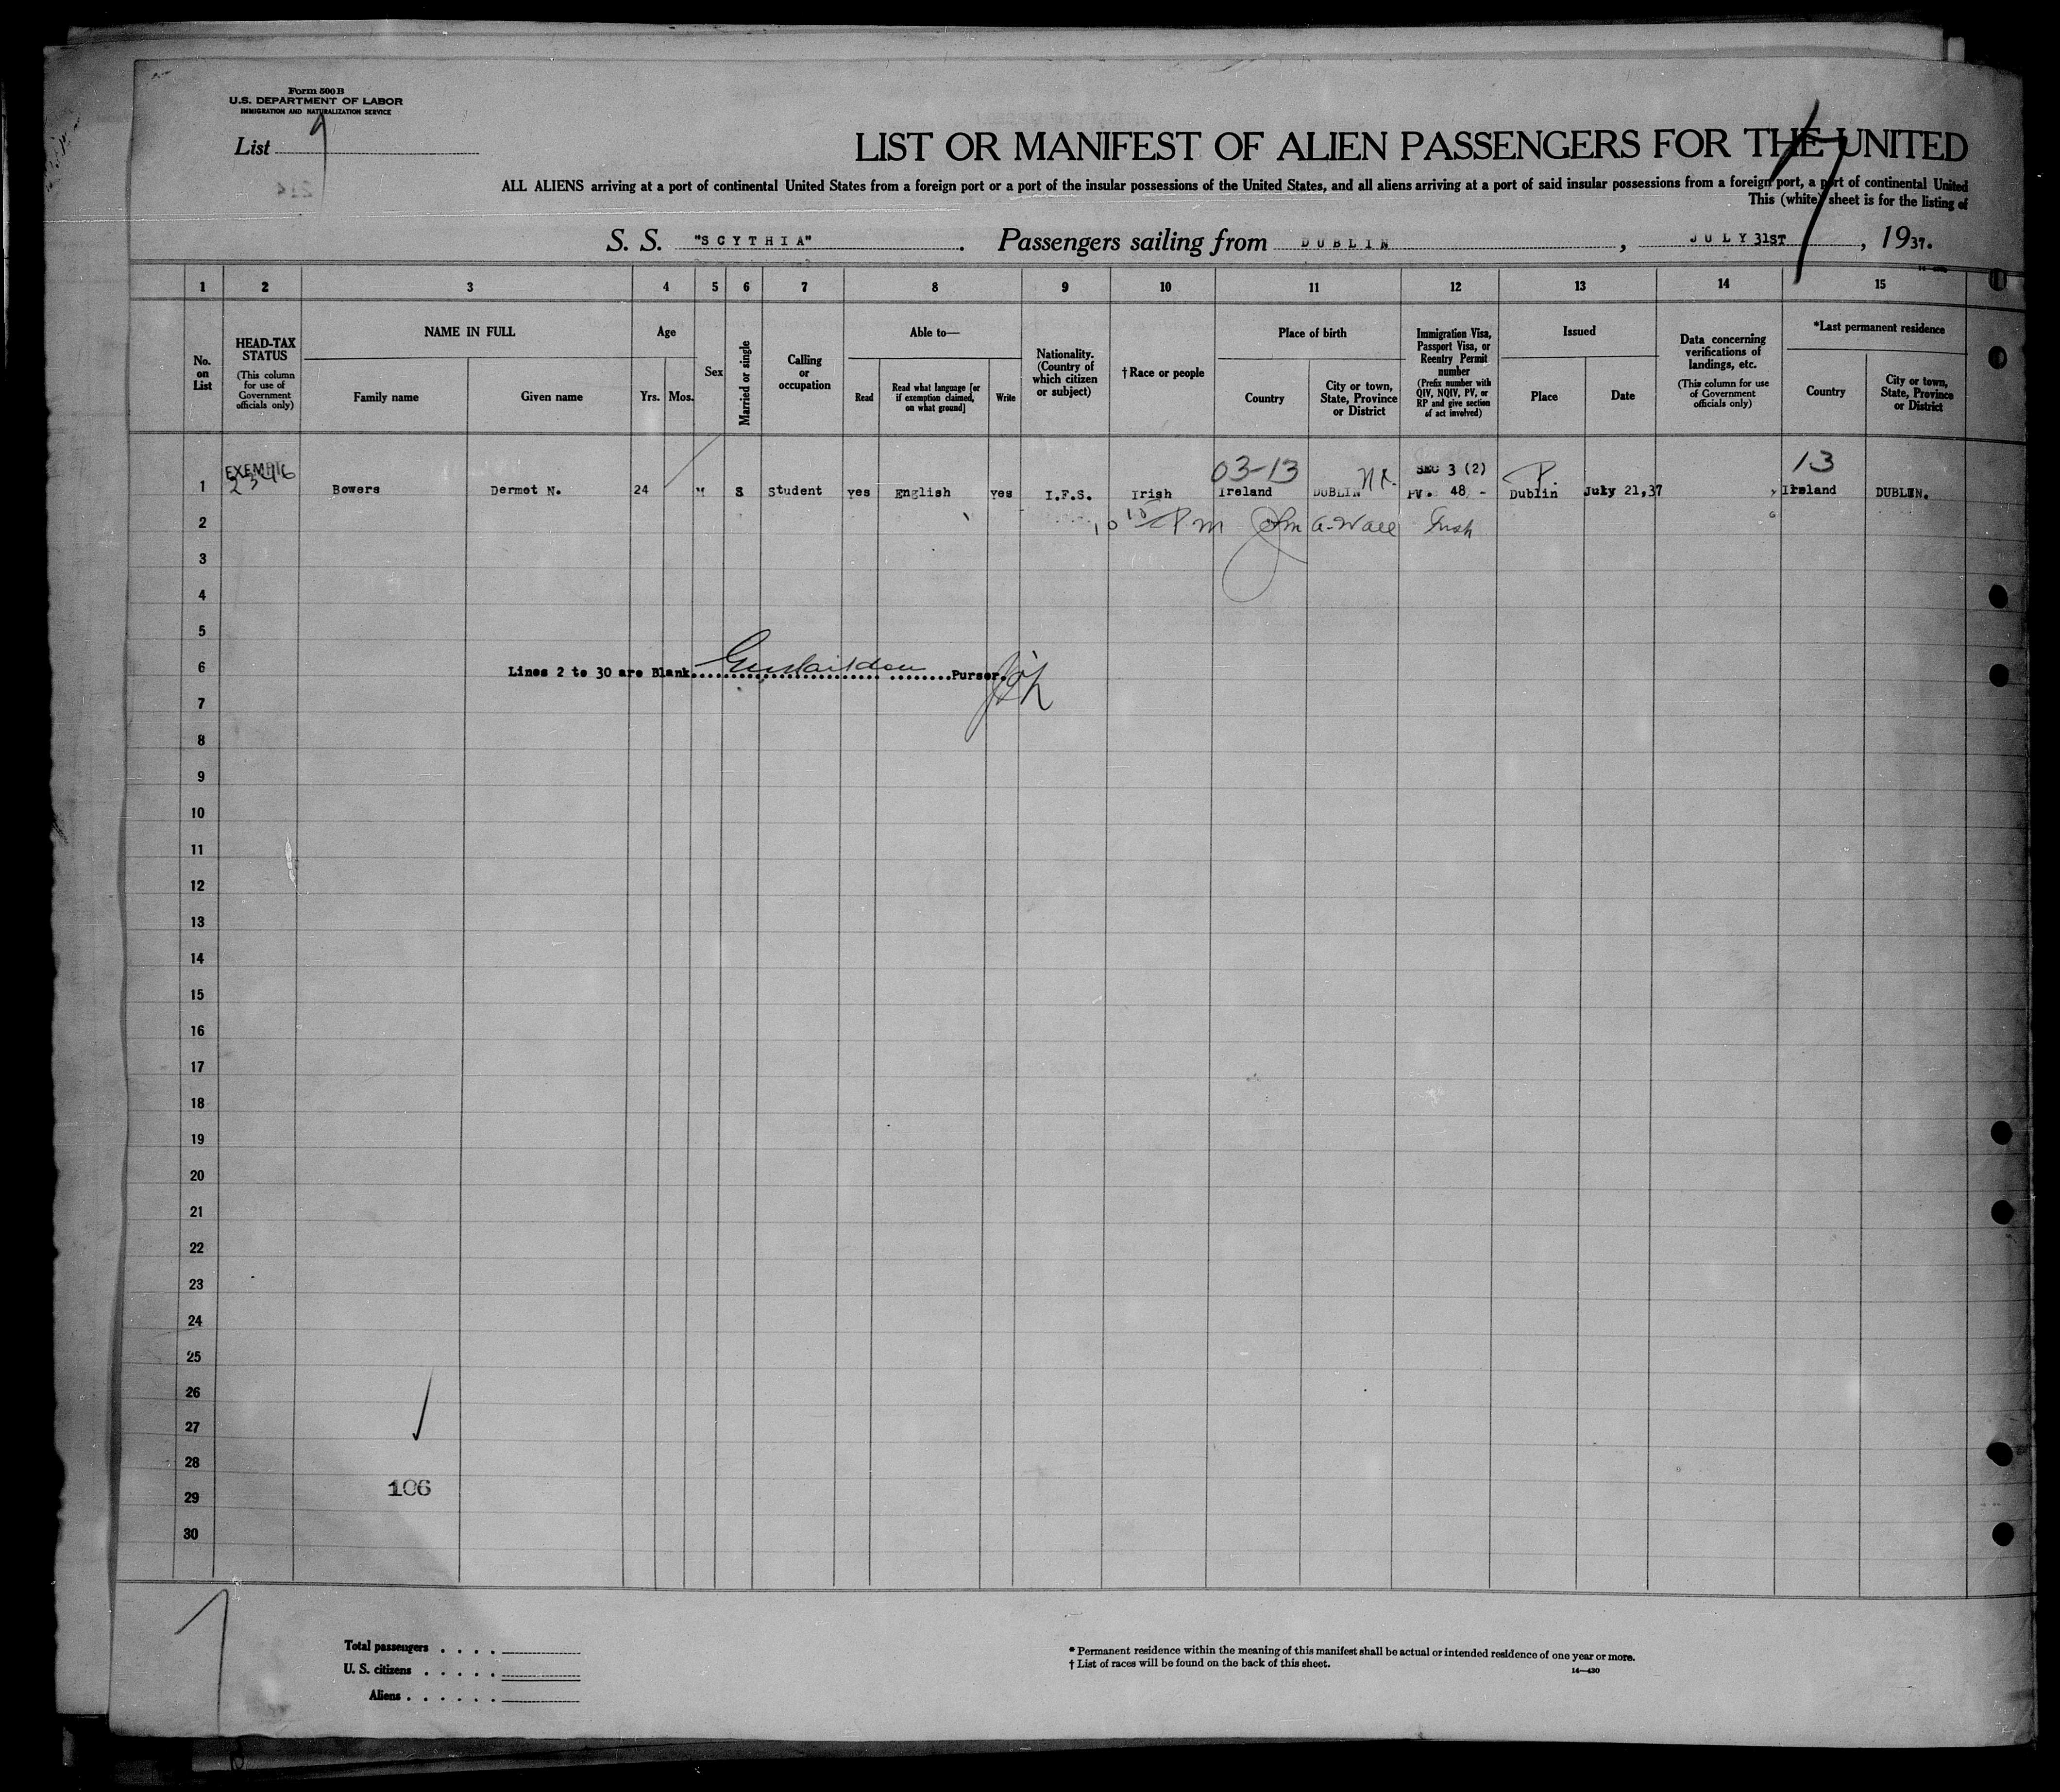 Form 500 B
U.S. DEPARTMENT OF LABOR
IMMIGRATION AND NATURALIZATION SERVICE
List 9
LIST OR MANIFEST OF ALIEN PASSENGERS FOR THE UNITED
ALL ALIENS arriving at a port of continental United States from a foreign port or a port of the insular possessions of the United States, and all aliens arriving at a port of said insular possessions from a foreign port, a port of continental United
This (white) sheet is for the listing of
S. S. "SCYTHIA" . Passengers sailing from DUBLIN , JULY 31ST , 1937.
1 2 3 4 5 6 7 8 9 10 11 12 13 14 15
No. on List
HEAD-TAX STATUS
(This column for use of Government officials only)
NAME IN FULL
Family name Given name
Age
Yrs. Mos.
Sex
Married or single
Calling or occupation
Able to—
Read
Read what language [or if exemption claimed, on what ground]
Write
Nationality. (Country of which citizen or subject)
†Race or people
Place of birth
Country
City or town, State, Province or District
Immigration Visa, Passport Visa, or Reentry Permit number
(Prefix number with QIV, NQIV, PV, or RP and give section of act involved)
Issued
Place Date
Data concerning verifications of landings, etc.
(This column for use of Government officials only)
*Last permanent residence
Country
City or town, State, Province or District
EXEMPT 03-13 SEC 3 (2) P. 13
1 Bowers Dermot N. 24 M S Student yes English yes I.F.S. Irish Ireland DUBLIN PV. 48 - Dublin July 21,37 Ireland DUBLIN.
2 10 15 PM A. Wall
3
4
5
6
Lines 2 to 30 are Blank Purser.
7
8
9
10
11
12
13
14
15
16
17
18
19
20
21
22
23
24
25
26
27
28
106
29
30
Total passengers . . . .
U. S. citizens . . . . .
Aliens . . . . . .
* Permanent residence within the meaning of this manifest shall be actual or intended residence of one year or more.
† List of races will be found on the back of this sheet.
14—430